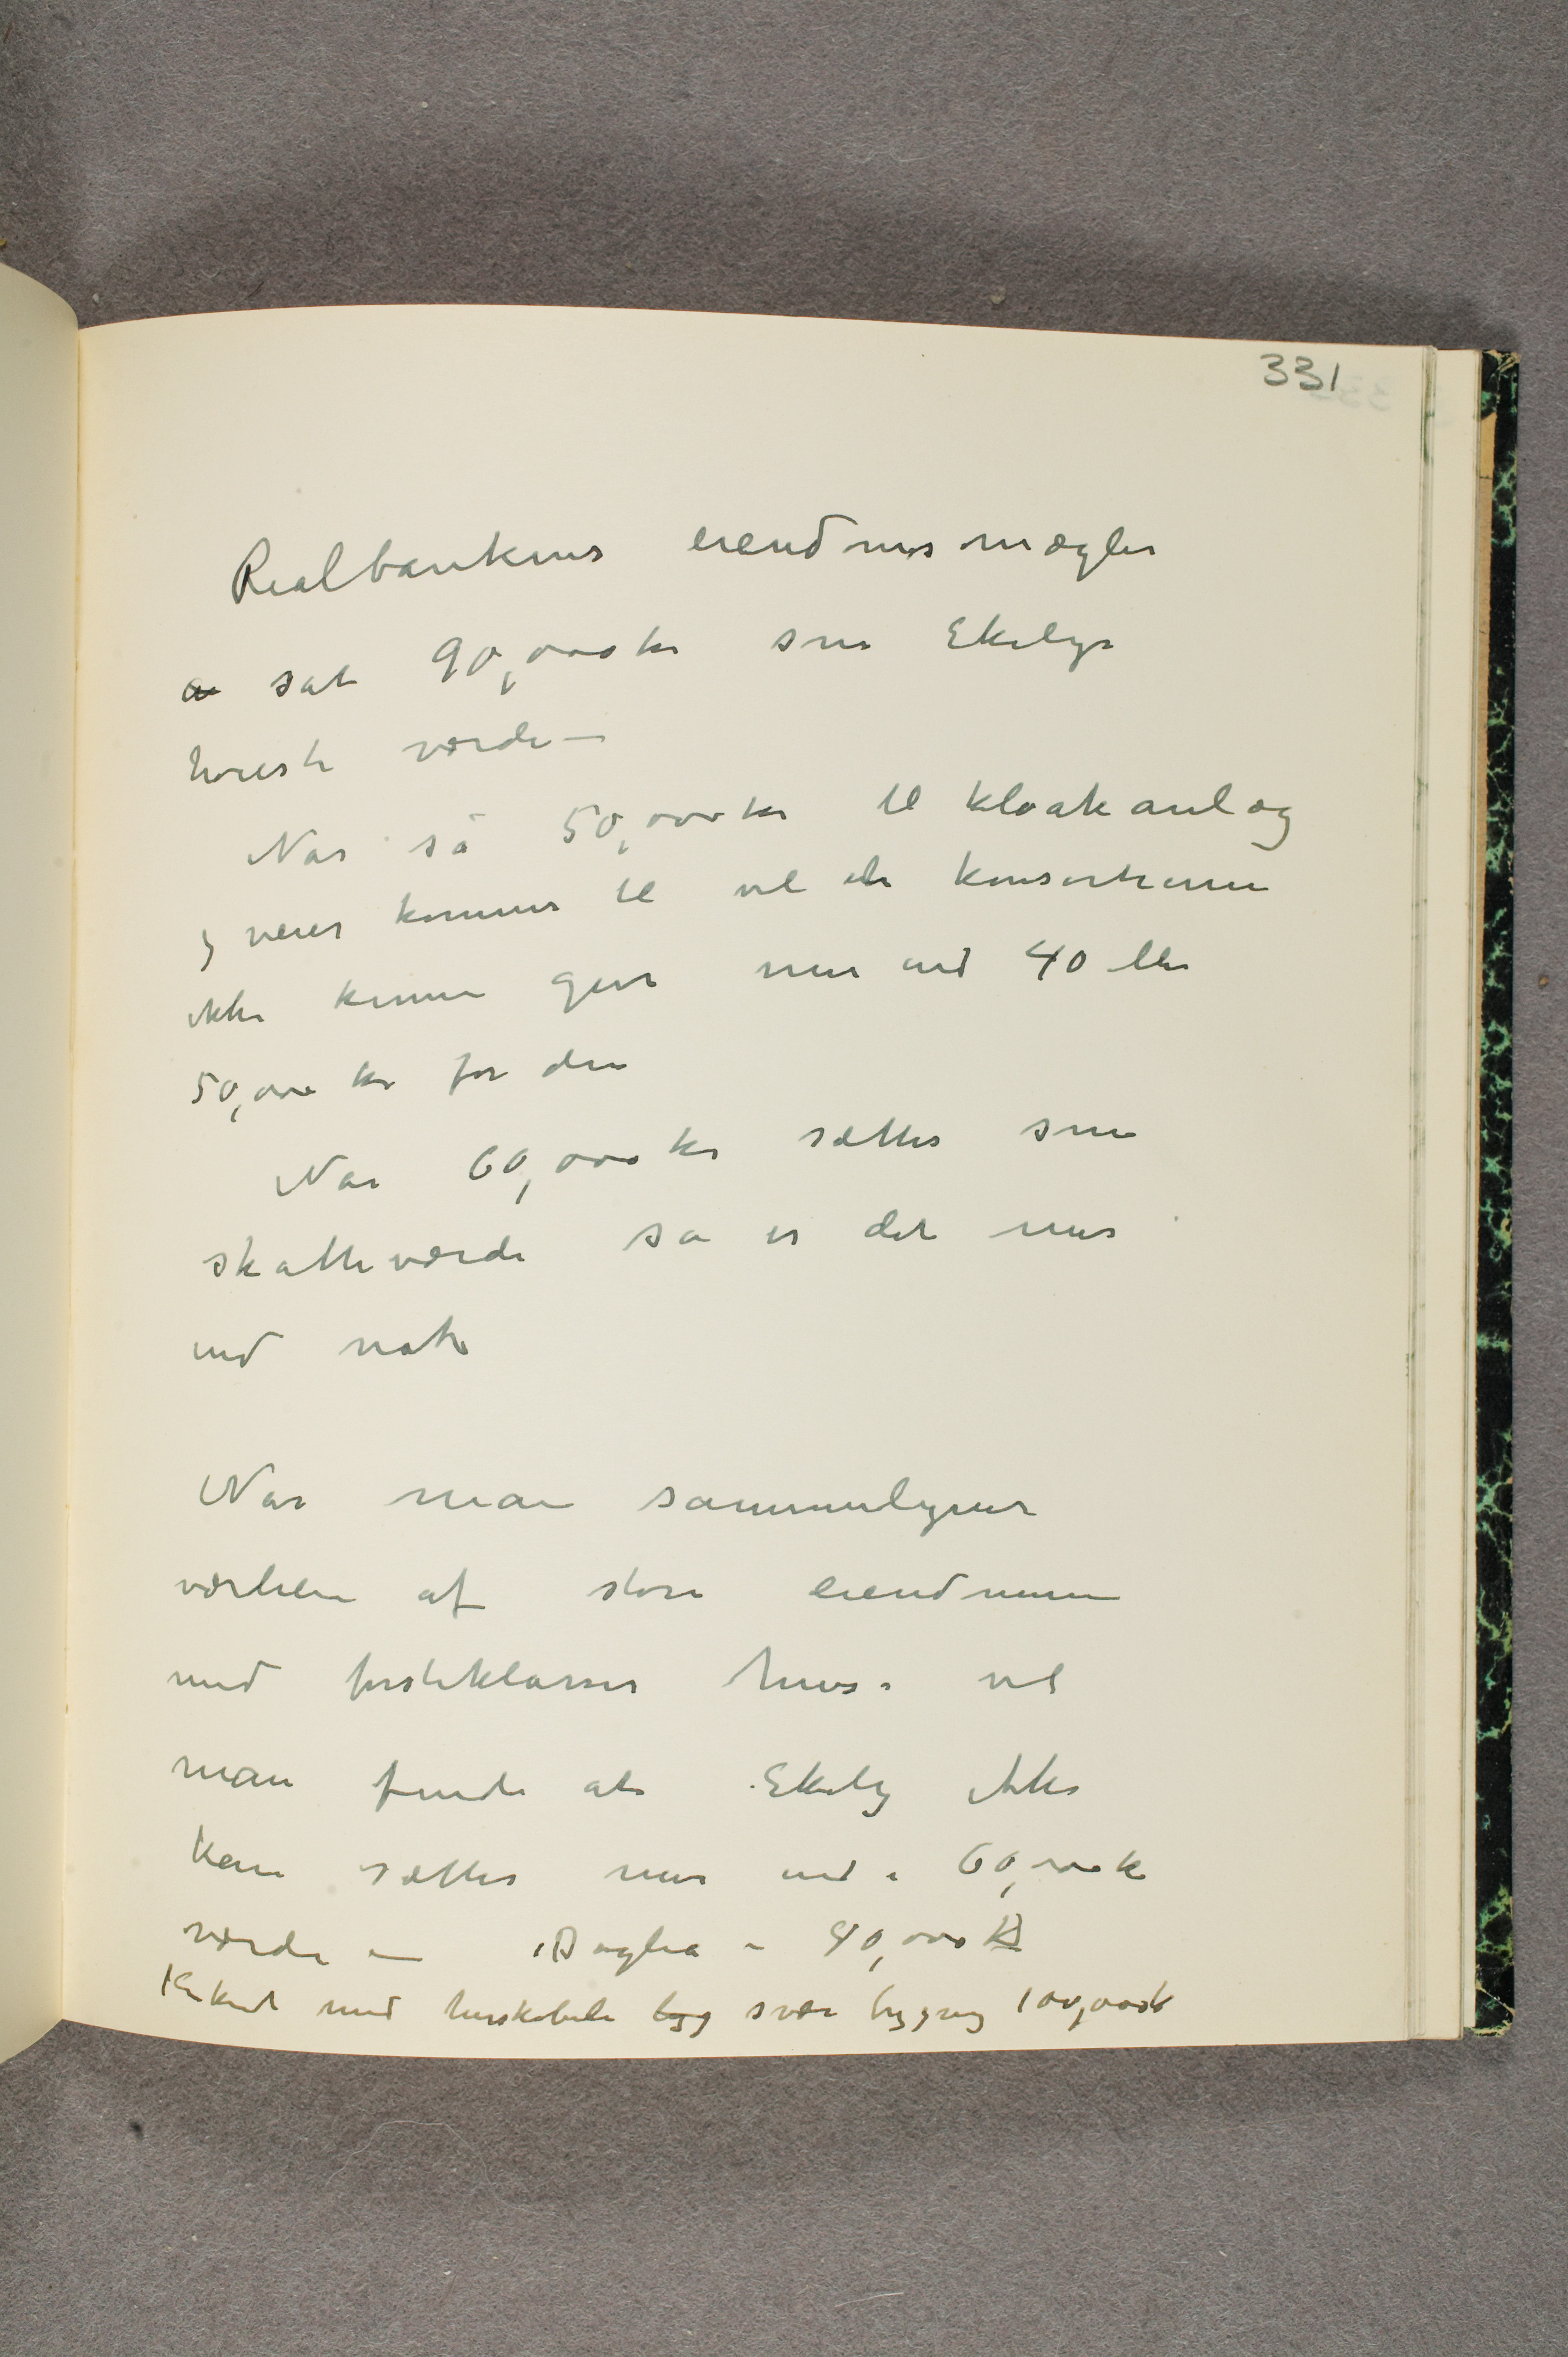 331
Realbankens eiendomsmægler
a sat 90,000 kr som Ekelys
høieste værdi –
Når så 50,000 kr til kloakanlæg
og veier kommer til vil et konsortium
ikke kunne give mer end 40 eller
50,000 kr for den
Når 60,000 kr sættes som
skatteværdi så er det mer
end nok
Når man sammenligner
værdien af store eiendomme
med førsteklasses huse vil
man finde at Ekely ikke
kan sættes mer end i 60,000 k
værdi – i 40,000 K
med herskabelig bygg svær bygning 100,000 k